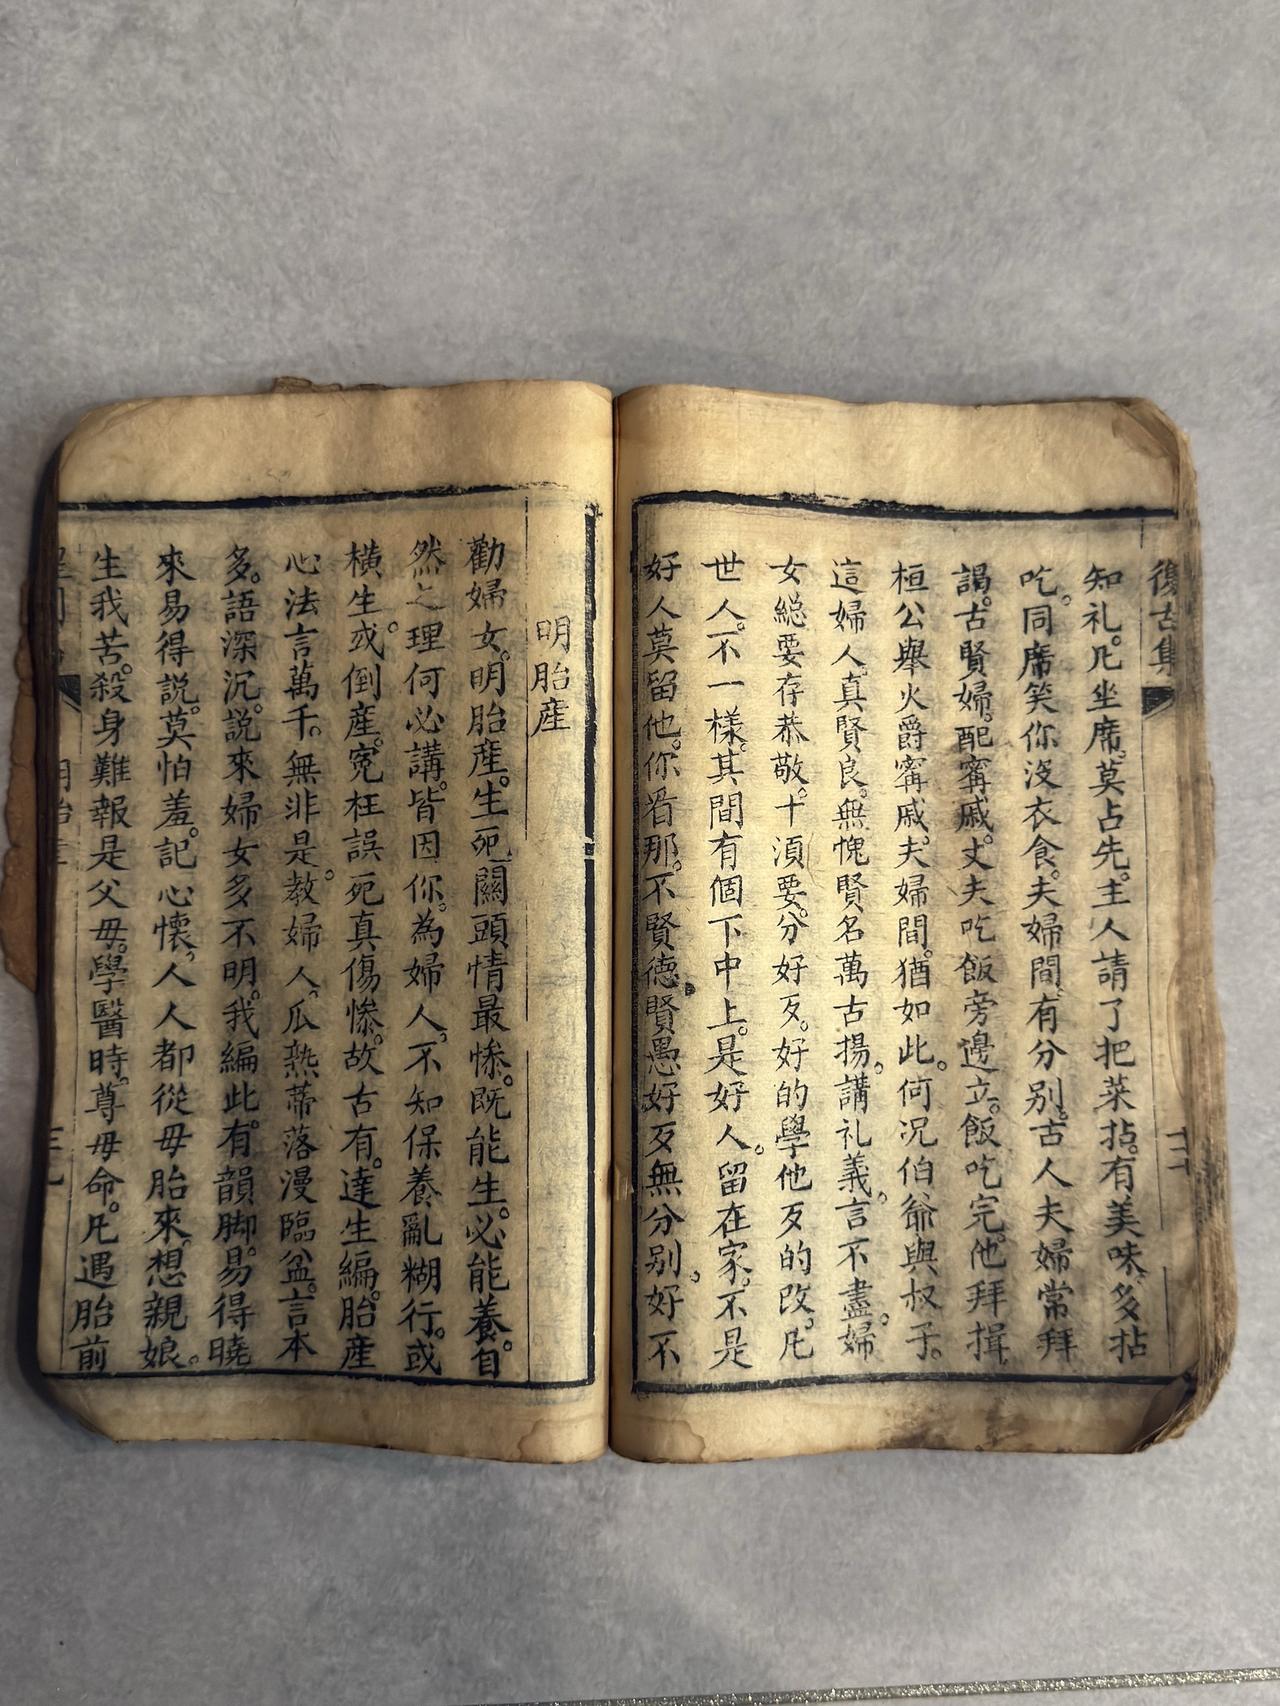 復古集
知礼。凡坐席。莫占先。主人請了把菜拈。有美味。多拈
吃。同席笑你没衣食。夫婦間。有分别。古人夫婦常拜
謁。古賢婦。配甯戚。丈夫吃飯旁邊立。飯吃完。他拜揖。
桓公舉火爵甯戚。夫婦間。猶如此。何况伯爺與叔子。
這婦人。真賢良。無愧賢名萬古揚。講礼義。言不盡。婦
女縂要存恭敬。十湏要。分好歹。好的學他歹的改。凡
世人。不一樣。其間有個下中上。是好人。留在家。不是
好人莫留他。你看那。不賢德。賢愚好歹無分别。好不
明胎産
勸婦女。明胎産。生死關頭情最慘。既能生。必能養。自
然之理何必講。皆因你。為婦人。不知保養亂糊行。或
横生。或倒産。冤枉誤死真傷慘。故古有。達生編。胎産
心法言萬千。無非是。教婦人。瓜熟蒂落漫臨盆。言本
多。語深沉。説來婦女多不明。我編此。有韻脚。易得曉
來易得説。莫怕羞。記心懷。人人都從母胎來。想親娘。
生我苦。殺身難報是父母。學醫時。尊母命。凡遇胎前